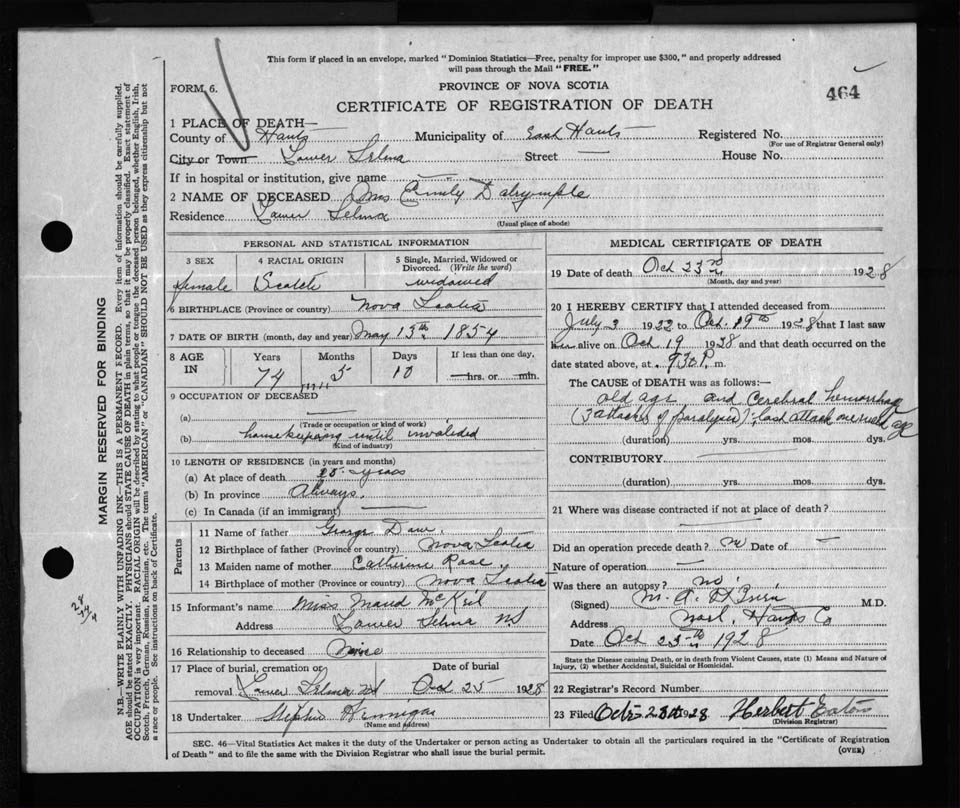 This form if placed in an envelope, marked " Dominion Statistics—Free, penalty for improper use $300, " and properly addressed
will pass through the Mail " FREE. "
FORM 6.
PROVINCE OF NOVA SCOTIA
464
CERTIFICATE OF REGISTRATION OF DEATH
1 PLACE OF DEATH—
County of Hants Municipality of East Hants Registered No.
(For use of Registrar General only)
City or Town Lower Selma Street — House No.
If in hospital or institution, give name —
2 NAME OF DECEASED Mrs Emily Dalrymple
Residence Lower Selma
(Usual place of abode)
PERSONAL AND STATISTICAL INFORMATION
3 SEX 4 RACIAL ORIGIN 5 Single, Married, Widowed or Divorced. (Write the word)
female Scotch widowed
6 BIRTHPLACE (Province or country) Nova Scotia
7 DATE OF BIRTH (month, day and year) May 13th 1854
8 AGE IN Years Months Days If less than one day,
74 5 10 —hrs. or —min.
9 OCCUPATION OF DECEASED
(a) —
(Trade or occupation or kind of work)
(b) housekeeping until invalided
(Kind of industry)
10 LENGTH OF RESIDENCE (in years and months)
(a) At place of death years
(b) In province Always.
(c) In Canada (if an immigrant) —
Parents
11 Name of father George
12 Birthplace of father (Province or country) Nova Scotia
13 Maiden name of mother Catherine Rose
14 Birthplace of mother (Province or country) Nova Scotia
15 Informant's name Miss Maud
Address Lower Selma NS
16 Relationship to deceased Niece
17 Place of burial, cremation or removal Date of burial
Lower Selma NS Oct 25 1928
18 Undertaker Stephen
(Name and address)
MEDICAL CERTIFICATE OF DEATH
19 Date of death Oct 23rd 1928
(Month, day and year)
20 I HEREBY CERTIFY that I attended deceased from
July 3 1922 to Oct. 19th 1928 that I last saw
her alive on Oct 19 1928 and that death occurred on the
date stated above, at 9 30 P. m.
The CAUSE of DEATH was as follows:—
old age and cerebral hemorrhage
(3 attacks of paralysis); last attack one week ago
(duration) yrs. mos. dys.
CONTRIBUTORY
(duration) yrs. mos. dys.
21 Where was disease contracted if not at place of death?
Did an operation precede death? no Date of —
Nature of operation —
Was there an autopsy? no
(Signed) M. A. M.D.
Address Noel, Hants Co
Date Oct 23rd 1928
State the Disease causing Death, or in death from Violent Causes, state (1) Means and Nature of
Injury, (2) whether Accidental, Suicidal or Homicidal.
22 Registrar's Record Number
23 Filed Oct 1928 Herbert Eaton
(Division Registrar)
SEC. 46—Vital Statistics Act makes it the duty of the Undertaker or person acting as Undertaker to obtain all the particulars required in the "Certificate of Registration
of Death " and to file the same with the Division Registrar who shall issue the burial permit.
(OVER)
MARGIN RESERVED FOR BINDING
N.B.—WRITE PLAINLY WITH UNFADING INK—THIS IS A PERMANENT RECORD. Every item of information should be carefully supplied.
AGE should be stated EXACTLY. PHYSICIANS should STATE CAUSE OF DEATH in plain terms, so that it may be properly classified. Exact statement of
OCCUPATION is very important. RACIAL ORIGIN will be described by stating to what people or tongue the deceased person belonged, whether English, Irish,
Scotch, French, German, Russian, Ruthenian, etc. The terms "AMERICAN" or "CANADIAN" SHOULD NOT BE USED as they express citizenship but not
a race or people. See instructions on back of Certificate.